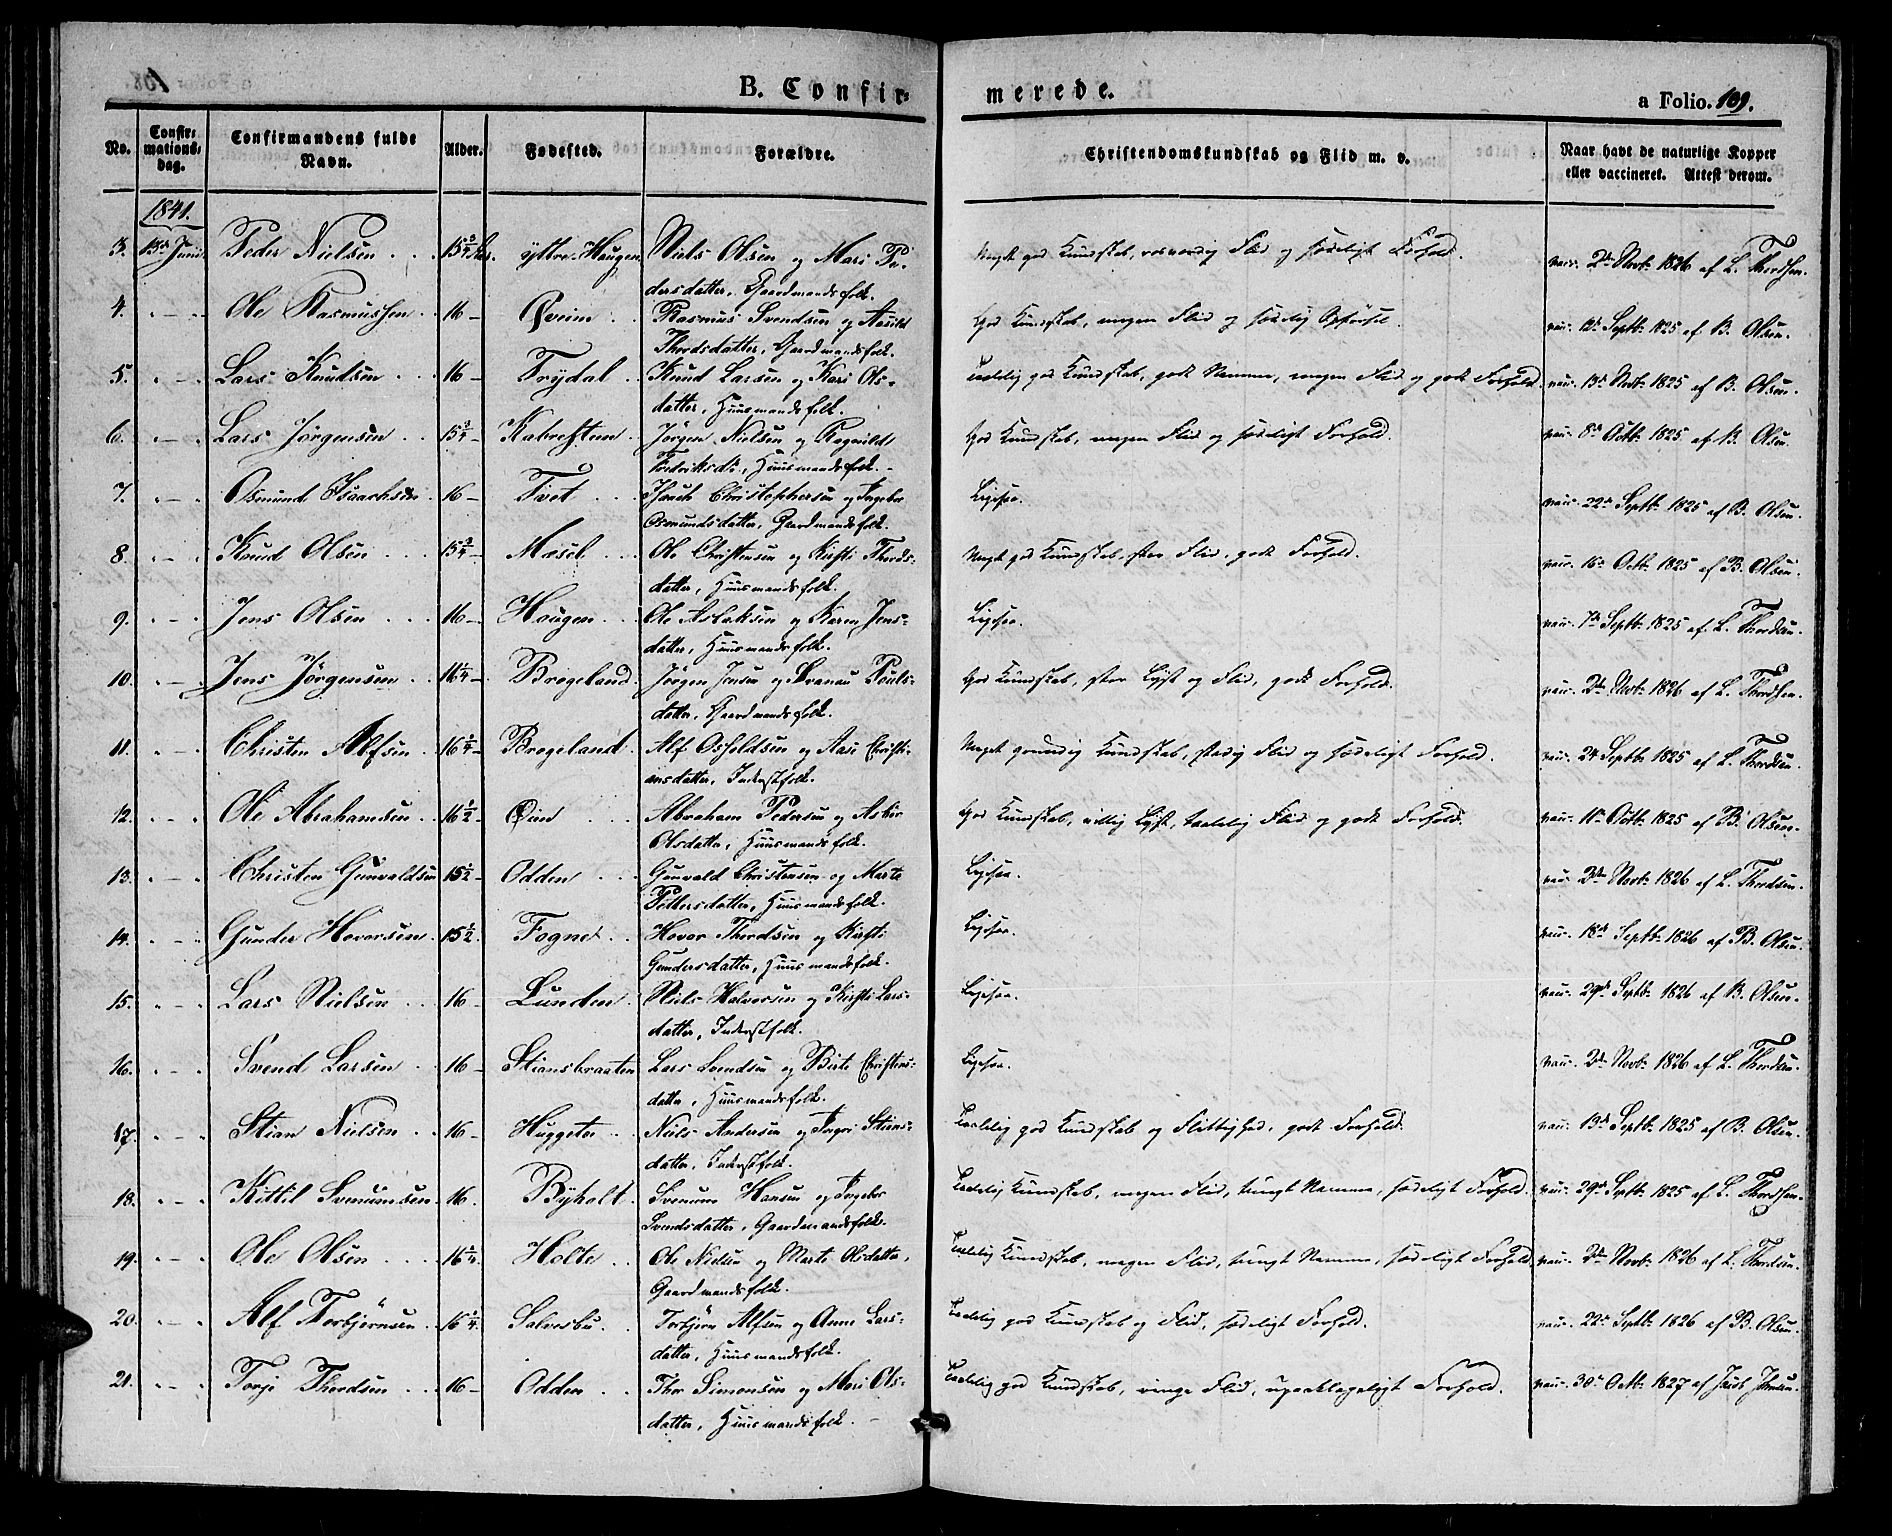 B. Confir-
merede.
a Folio. 109.
No.
Confir-
mations-
dag.
Confirmandens fulde
Navn.
Alder.
Fødested.
Forældre.
Christendomskundskab og Flid m. v.
Naar havt de naturlige Kopper
eller vaccineret. Attest derom.
1841.
3. 13de Junii Peder Nielsen 15 3/4 Aar. yttre-Haugen Niels Olsen og Mari Pe- Meget god Kundskab, Flid og sædeligt Forhold. vacc. 2den Novb. 1826 af L. Thordsen.
dersdatter, Gaardmandsfolk.
4. " — " Ole Rasmussen 16 — Qveim Rasmus Svendsen og Aasild God Kundskab, megen Flid og sædelig Opførsel. vacc. 12te Septb. 1825 af B. Olsen.
Thordsdatter, Gaardmandsfolk.
5. " — " Lars Knudsen 16 — Frydal Knud Larsen og Kari Ols- Taalelig god Kundskab, godt Nemme, megen Flid og godt Forhold. vacc. 13de Novb. 1825 af B. Olsen.
datter, Huusmandsfolk.
6. " — " Lars Jörgensen 15 3/4 — Kalvehteen Jörgen Nielsen og Ragnild God Kundskab, megen Flid og sædeligt Forhold. vacc. 8de Octb. 1825 af B. Olsen.
Fredriksdr., Huusmandsfolk.
7. " — " Osmund Isaachsen 16 — Tvet Isach Christophersen og Ingebor Ligesaa. vacc. 22de Septb. 1825 af B. Olsen.
Osmundsdatter, Gaardmandsfolk.
8. " — " Knud Olsen 15 3/4 — Mæsel Ole Christensen og Kirsti Thords- Meget god Kundskab, stor Flid, godt Forhold. vacc. 16de Octb. 1825 af B. Olsen.
datter, Huusmandsfolk.
9. " — " Jens Olsen 16 — Haugen Ole Aslaksen og Karen Jens- Ligesaa. vacc. 7de Septb. 1825 af L. Thordsen.
datter, Huusmandsfolk.
10. " — " Jens Jörgensen 16 1/4 — Brøgeland Jörgen Jensen og Svanau Pouls- God Kundskab, stor Lyst og Flid, godt Forhold. vacc. 2den Novb. 1826 af L. Thordsen.
datter, Gaardmandsfolk.
11. " — " Christen Alfsen 16 1/4 — Brøgeland Alf Osfoldsen og Aase Christi- Meget grundig Kundskab, stadig Flid og sædeligt Forhold. vacc. 24 Septb. 1825 af L. Thordsen.
ansdatter, Inderstfolk.
12. " — " Ole Abrahamsen 16 1/2 — Öen Abraham Pedersen og Asbor God Kundskab, villig Lyst, taalelig Flid og godt Forhold. vacc. 10de Octb. 1825 af B. Olsen.
Olsdatter, Huusmandsfolk.
13. " — " Christen Gunvaldsen 15 1/2 — Odden Gunvald Christensen og Marte Ligesaa. vacc. 2den Novb. 1826 af L. Thordsen.
Pettersdatter, Huusmandsfolk.
14. " — " Gunder Hovorsen 15 1/2 Fogne Hovor Thordsen og Kirsti Ligesaa. vacc. 18de Septb. 1826 af B. Olsen.
Gundersdatter, Huusmandsfolk.
15. " — " Lars Nielsen 16 — Lunden Niels Halvorsen og Kirsti Lars- Ligesaa. vacc. 29de Septb. 1826 af B. Olsen.
datter, Inderstfolk.
16. " — " Svend Larsen 16 — Stiansbraaten Lars Svendsen og Birte Christens- Ligesaa. vacc. 2den Novb. 1826 af L. Thordsen.
datter, Huusmandsfolk.
17. " — " Stian Nielsen 16 — Huggeter Niels Andersen og Inger Stiens- Taalelig god Kundskab og Flittighed, godt Forhold. vacc. 13de Septb. 1825 af B. Olsen.
datter, Inderstfolk.
18. " — " Kittil Svenumsen 16 Byholt Svenum Hansen og Ingebor Taalelig Kundskab, megen Flid, tungt Nemme, sædeligt Forhold. vacc. 29de Septb. 1825 af L. Thordsen.
Svendsdatter, Gaardmandsfolk.
19. " — " Ole Olsen 16 1/4 Holte Ole Nielsen og Marte Olsdatter, Taalelig Kundskab, megen Flid, tungt Nemme, sædeligt Forhold. vacc. 2den Novb. 1826 af L. Thordsen.
Gaardmandsfolk.
20. " — " Alf Torbjörnsen 16 1/4 Salvesbu Torbjörn Alfsen og Anne Lars- Taalelig god Kundskab og Flid, sædeligt Forhold. vacc. 22de Septb. 1826 af B. Olsen.
datter, Huusmandsfolk.
21. " — " Torje Thordsen 16 — Odden Thor Simonsen og Mari Ols- Taalelig god Kundskab, ringe Flid, upaaklageligt Forhold. vacc. 30te Octb. 1827 af
datter, Huusmandsfolk.